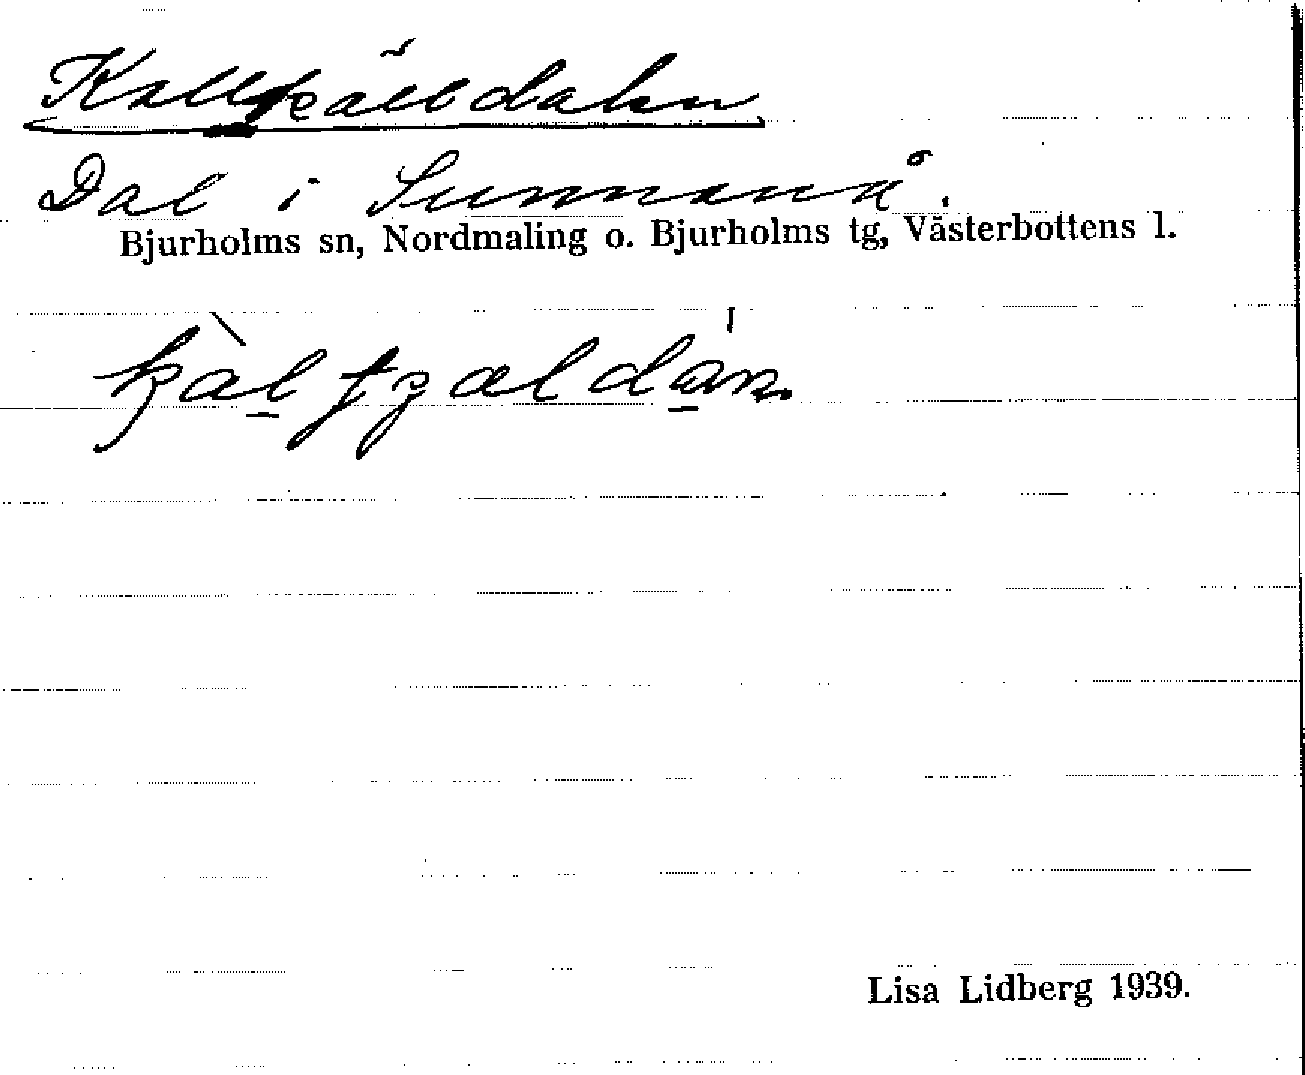 Kallkälldalen
Dal i Sunnanå.
Bjurholms sn, Nordmaling o. Bjurholms tg, Västerbottens l.
Lisa Lidberg 1939.